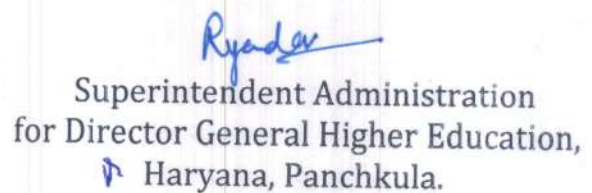 Superintendent Administration
for Director General Higher Education,
Haryana, Panchkula.